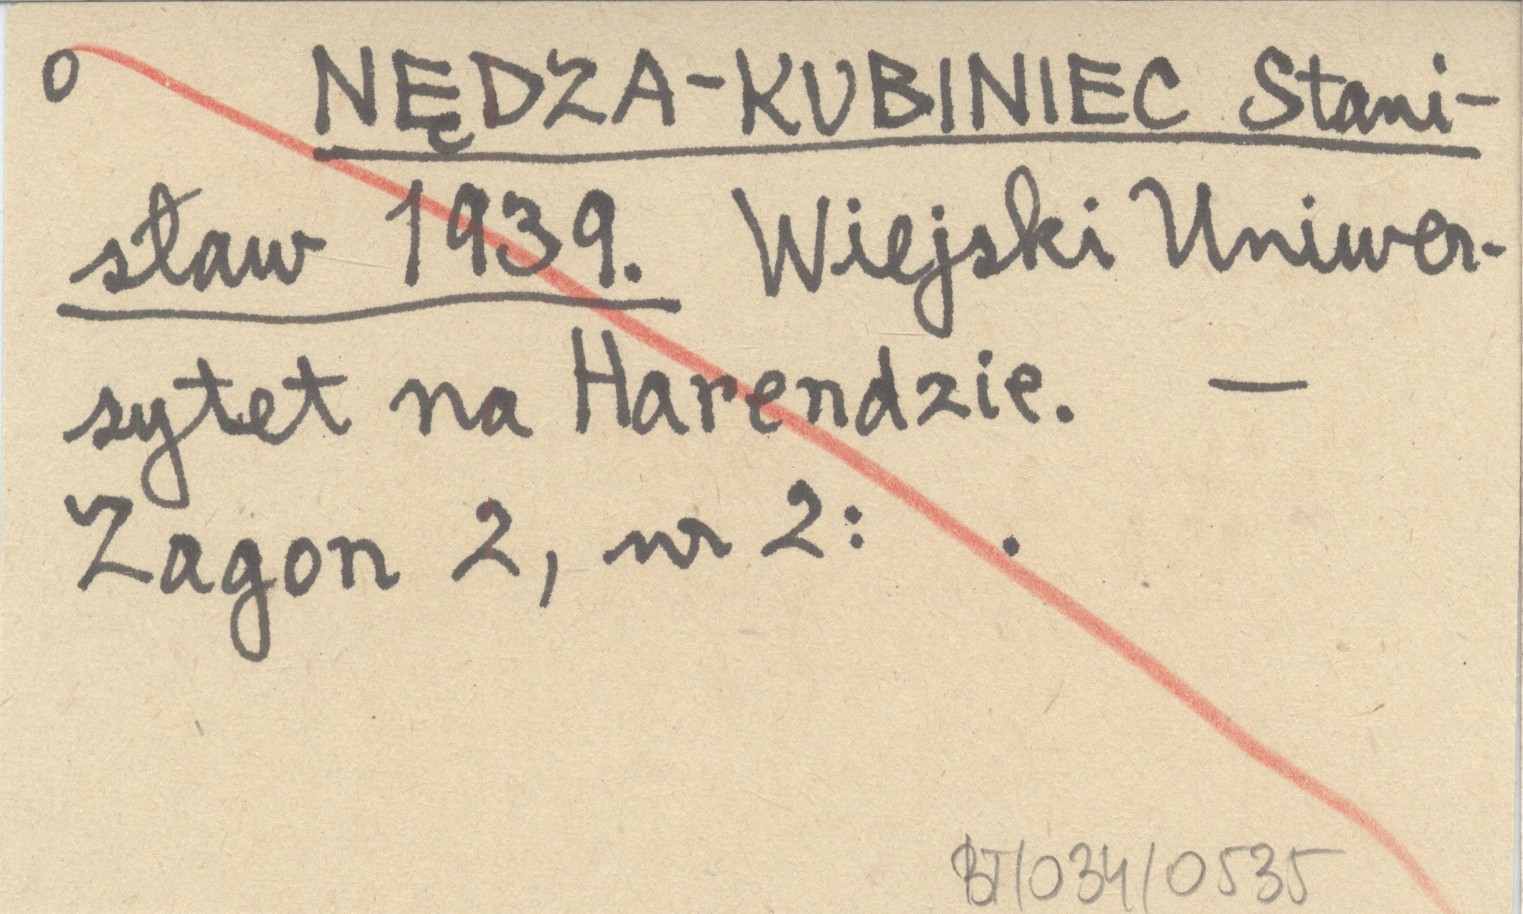 0 NĘDZA-KUBINIEC Stani-
sław 1939. Wiejski Uniwer-
sytet na Harendzie. —
Zagon 2, nr 2: .
BT/034/0535